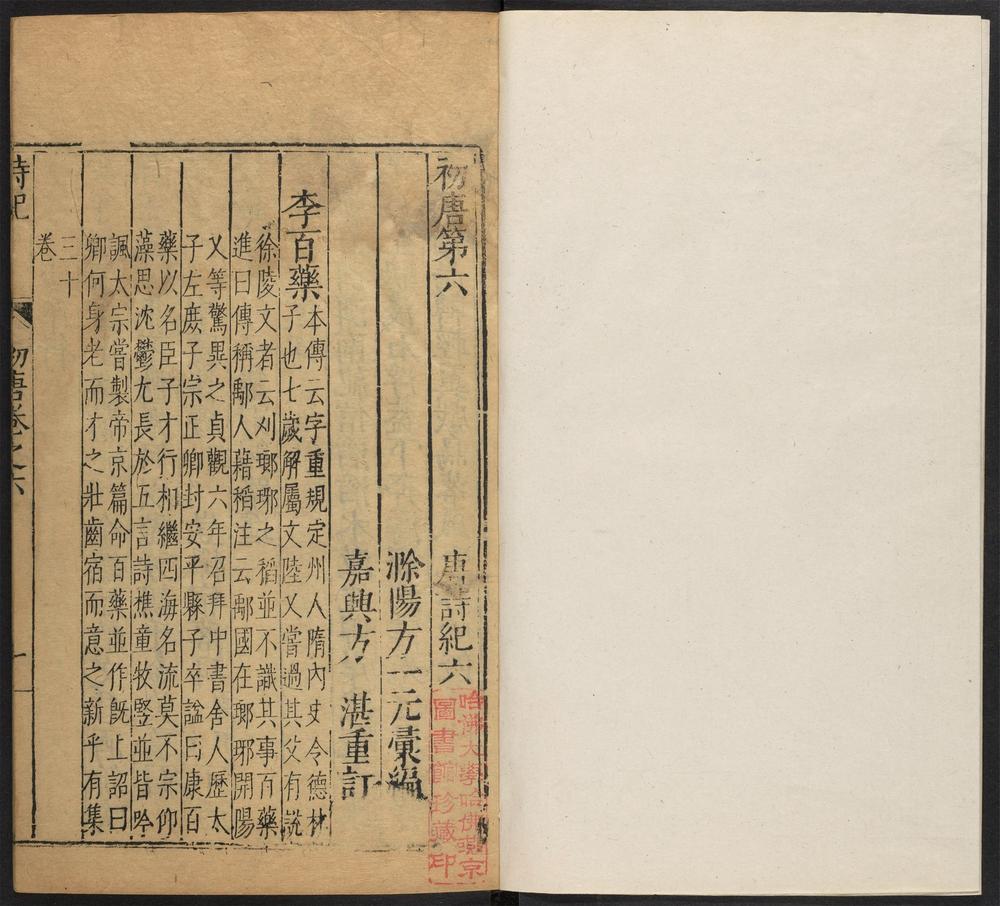 初唐第六 唐詩紀六
滁陽方一元彙編
嘉興方 湛重訂
李百藥
本傳云字重規定州人隋內史令德林
子也七歲解屬文陸乂嘗過其父有説
徐陵文者云刈瑯琊之稻並不識其事百藥
進曰傳稱鄅人藉稻注云鄅國在瑯琊開陽
乂等驚異之貞觀六年召拜中書舍人歷太
子左庶子宗正卿封安平縣子卒諡曰康百
藥以名臣子才行相繼四海名流莫不宗仰
藻思沈鬱尤長於五言詩樵童牧竪並皆吟
諷太宗嘗製帝京篇命百藥並作旣上詔曰
卿何身老而才之壯齒宿而意之新乎有集
三十
卷
詩紀 初唐卷之六 一
哈佛大學哈佛燕京
圖書館珍藏印